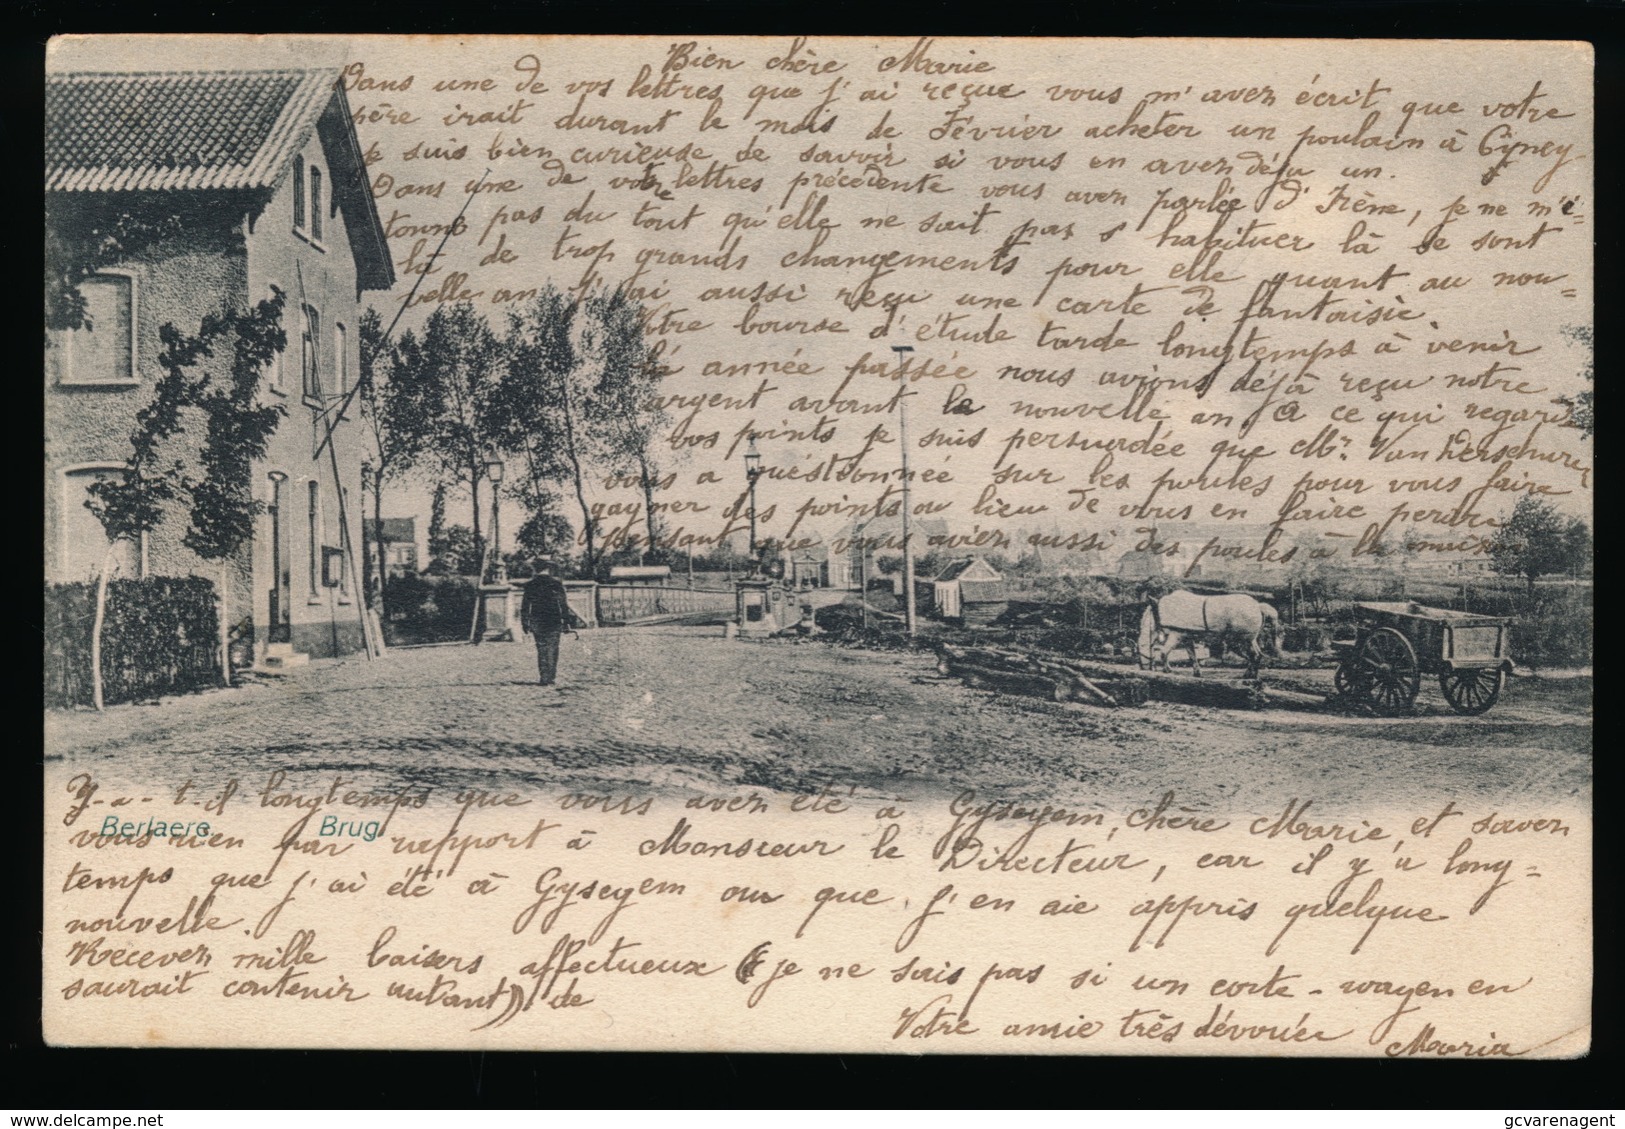 Bien chère Marie
Dans une de vos lettres que j'ai reçue vous m'aven écrit que votre
père irait durant le mois de Février acheter un poulain à Cyney
je suis bien curieuse de savoir si vous en aven déja un.
Dans une de vos lettres précédente vous aven parlée d'Irène, je ne m'é=
tonne pas du tout qu'elle ne sait pas s'habituer là ce sont
là de trop grands changements pour elle quant au nou=
velle an j'ai aussi reçu une carte de fantaisie.
Notre bourse d'étude tarde longtemps à venir
là année passée nous avions déjà reçu notre
argent avant le nouvelle an A ce qui regarde
vos points je suis persuadée que Mr. Van Derschuren
vous a questionnée sur les poules pour vous faire
gagner des points au lieu de vous en faire perdre
pensant que vous avien aussi des poules à la maison
Y-a-t-il longtemps que vous aven été à Gyseyem, chère Marie, et saven
vous rien par rapport à Monsieur le Directeur, car il y'a long=
temps que j'ai été à Gyseyem ou que j'en aie appris quelque
nouvelle.
Receven mille baisers affectueux (je ne sais pas si un carte-wagen en
saurait contenir autant) de
Votre amie très dévouée
Maria
Berlaere. Brug
delcampe.net
gcvarenagent